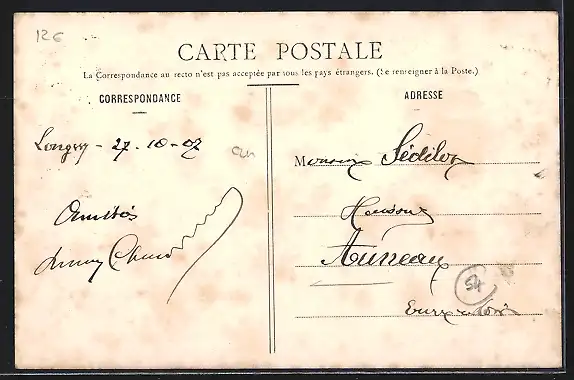 12€
CARTE POSTALE
La Correspondance au recto n'est pas acceptée par tous les pays étrangers. (Se renseigner à la Poste.)
CORRESPONDANCE
ADRESSE
Longny - 27-10-07
Monsieur Sédillot
Auneau
Eure et Loir
Amitiés